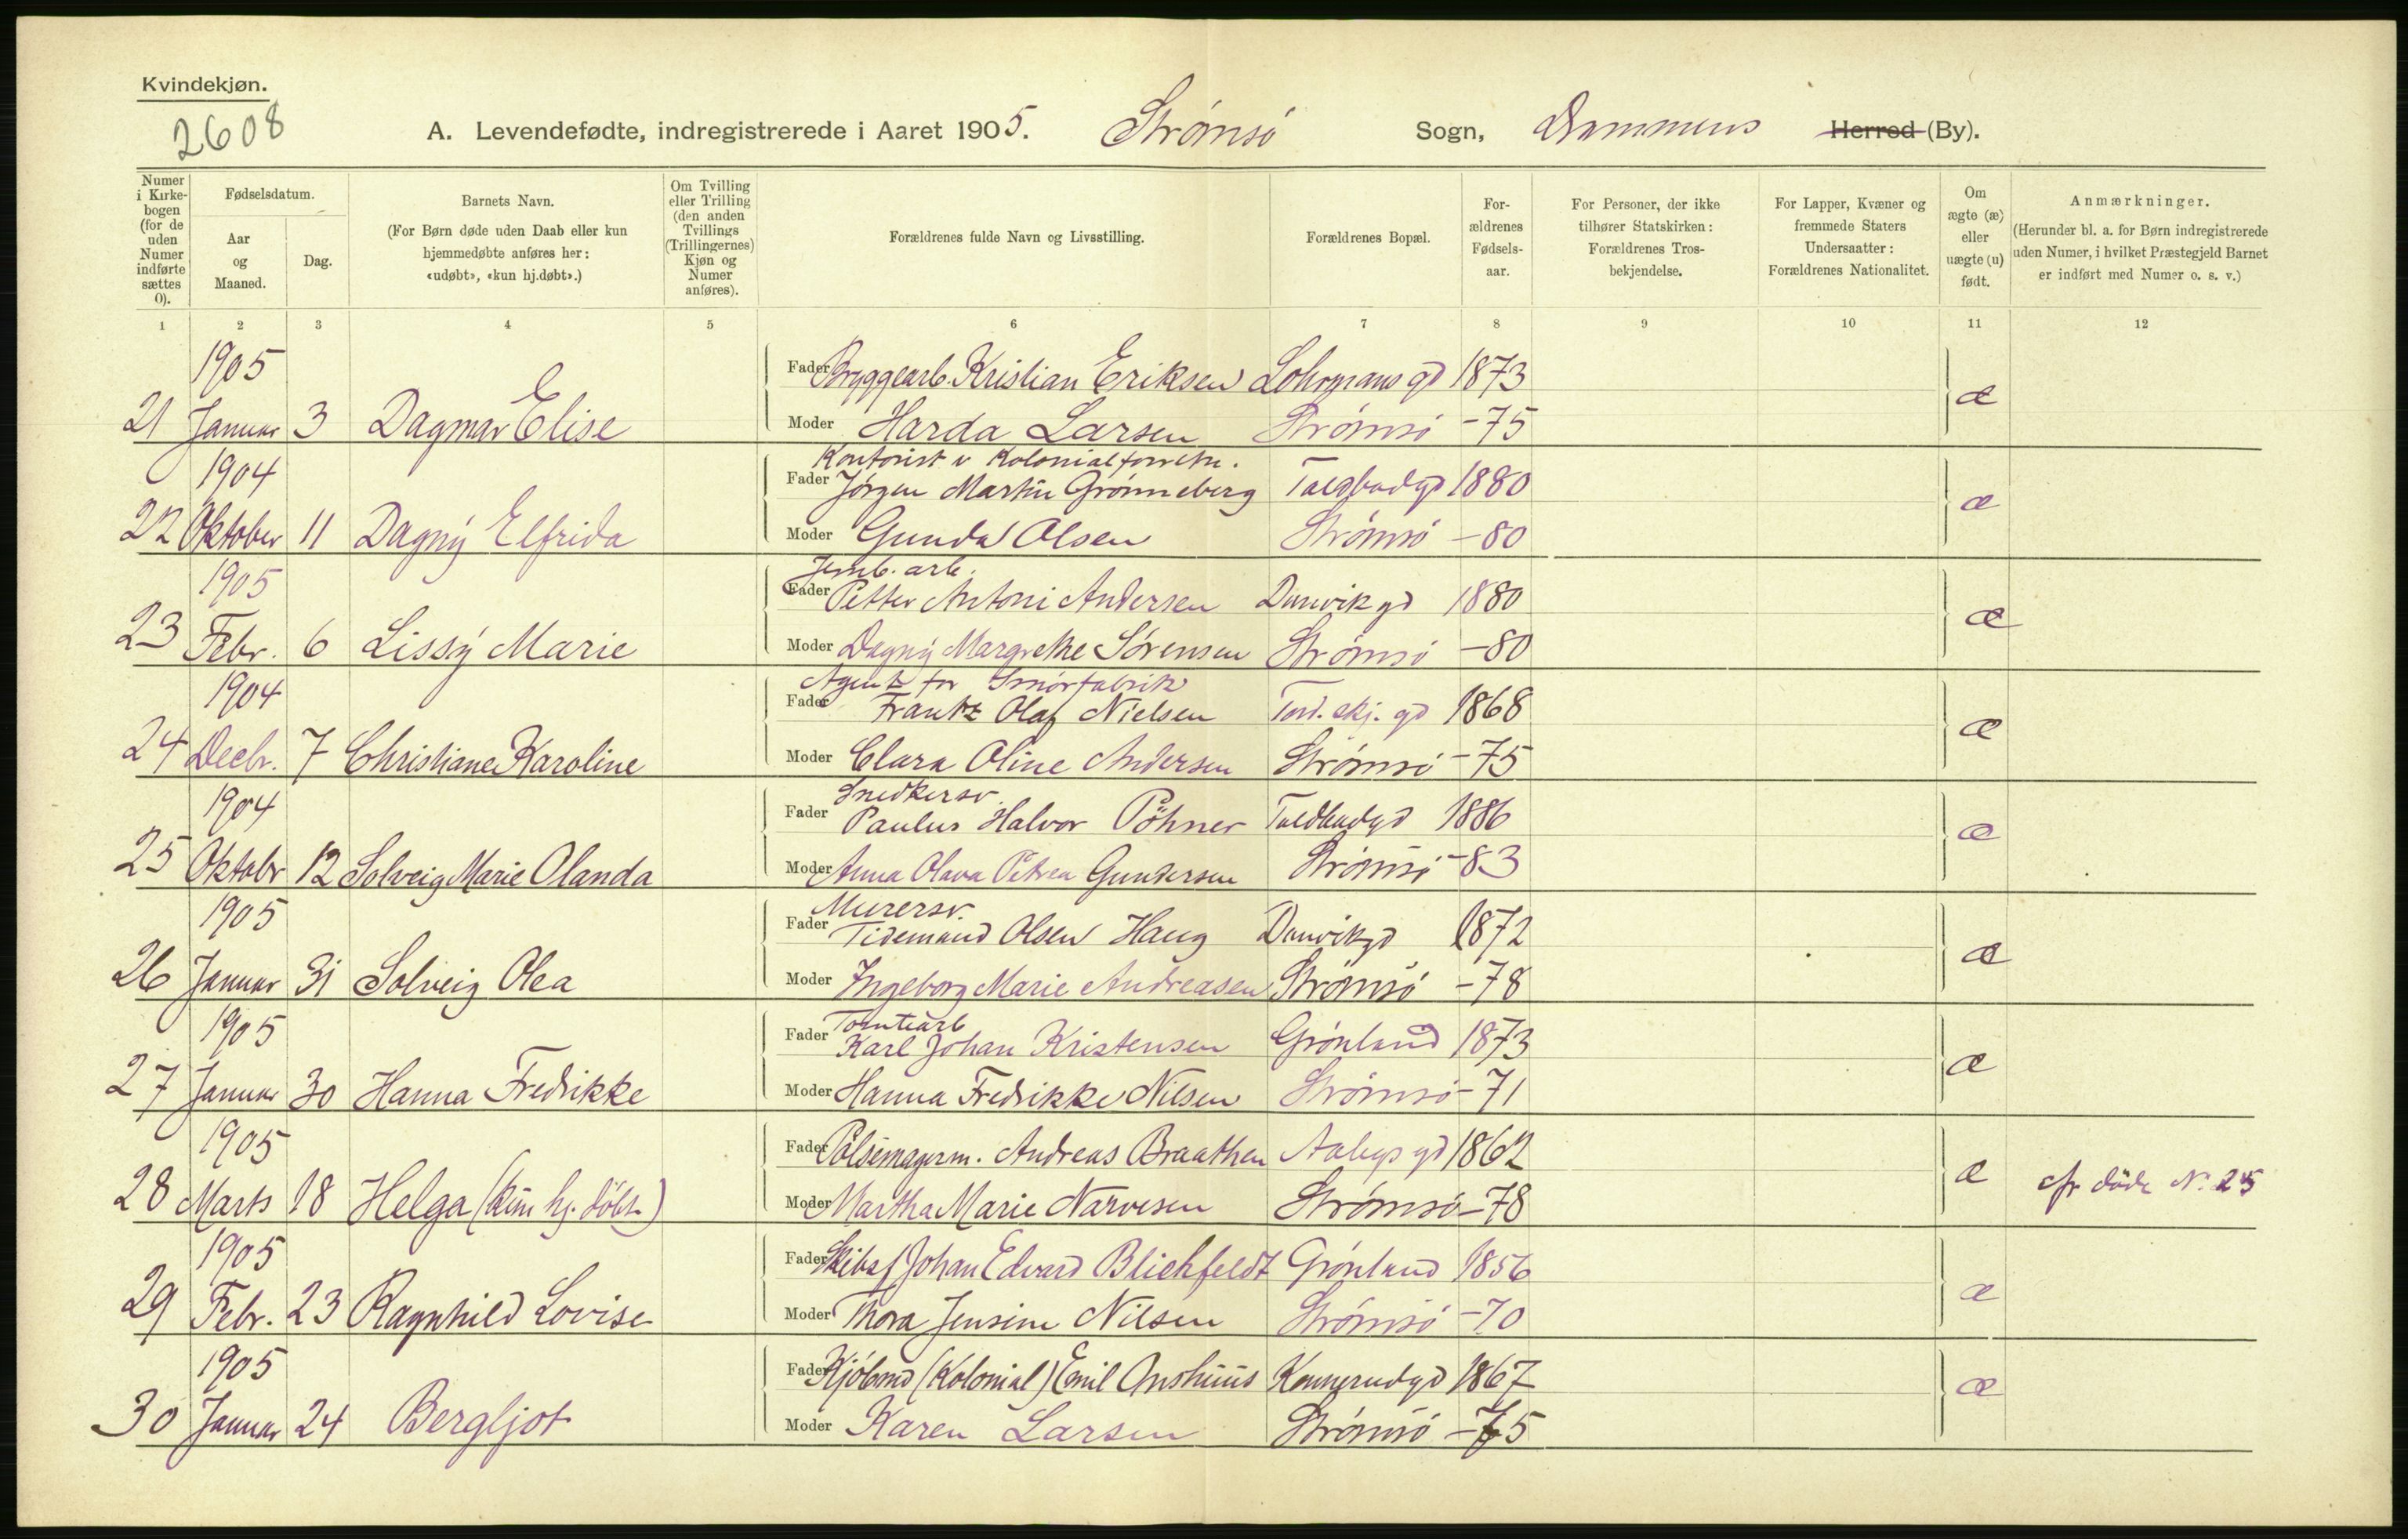 Kvindekjøn.
2608
A. Levendefødte, indregistrerede i Aaret 1905. Strømsø Sogn, Drammens Herred (By).
Numer i Kirkebogen (for de uden Numer indførte sættes 0).
Fødselsdatum.
Aar og Maaned.
Dag.
Barnets Navn.
(For Børn døde uden Daab eller kun hjemmedøbte anføres her: «udøbt», «kun hj.døbt».)
Om Tvilling eller Trilling (den anden Tvillings (Trillingernes) Kjøn og Numer anføres).
Forældrenes fulde Navn og Livsstilling.
Forældrenes Bopæl.
Forældrenes Fødselsaar.
For Personer, der ikke tilhører Statskirken: Forældrenes Trosbekjendelse.
For Lapper, Kvæner og fremmede Staters Undersaatter: Forældrenes Nationalitet.
Om ægte (æ) eller uægte (u) født.
Anmærkninger.
(Herunder bl. a. for Børn indregistrerede uden Numer, i hvilket Præstegjeld Barnet er indført med Numer o. s. v.)
1 2 3 4 5 6 7 8 9 10 11 12
1905 Fader Bryggearb. Kristian Eriksen Lohrmans gd 1873
21 Januar 3 Dagmar Elise Moder Harda Larsen Strømsø -75 æ
1904 Kontorist v Kolonialforretn.
Fader Jörgen Martin Grønneberg Toldbodgd 1880
22 Oktober 11 Dagny Elfrida Moder Gunda Olsen Strømsø -80 æ
1905 Jernb. arb.
Fader Petter Antoni Andersen Danvik gd 1880
23 Febr. 6 Lissy Marie Moder Dagny Margrethe Sörensen Strømsø -80 æ
1904 Agent for Smörfabrik
Fader Frantz Olaf Nielsen Tord. skj. gd 1868
24 Decbr. 7 Christiane Karoline Moder Clara Oline Andersen Strømsø -75 æ
1904 Snedkersv.
Fader Paulus Halvor Pöhner Toldbodgd 1886
25 Oktobr 12 Solveig Marie Olanda Moder Anna Olava Petrea Gundersen Strømsø -83 æ
1905 Murersv.
Fader Tidemand Olsen Haug Danvikgd 1872
26 Januar 31 Solveig Olea Moder Ingeborg Marie Andreasen Strømsø -78 æ
1905 Tomtearb
Fader Karl Johan Kristensen Grønland 1873
27 Januar 30 Hanna Fredrikke Moder Hanna Fredrikke Nilsen Strømsø -71 æ
1905 Fader Pölsemagerm. Andreas Braathen gd 1862
28 Marts 18 Helga (kun hj. döbt) Moder Martha Marie Narvesen Strømsø -78 æ cfr döde N. 25
1905 Fader Skibsf Johan Edvard Blichfeldt Grönland 1856
29 Febr. 23 Ragnhild Lovise Moder Thora Jensine Nilsen Strømsø -70 æ
1905 Fader Kjöbmd (Kolonial) Emil Anshuus Konnerudgd 1867
30 Januar 24 Bergljot Moder Karen Larsen Strømsø -75 æ